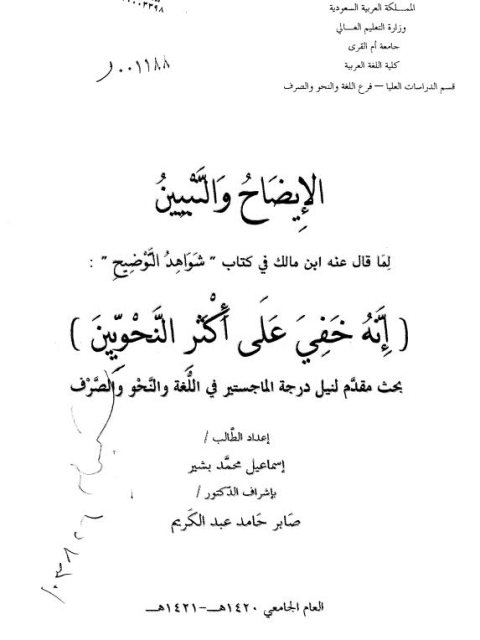 المملكة العربية السعودية
وزارة التعليم العالي
جامعة أم القرى
كلية اللغة العربية
قسم الدراسات العليا – فرع اللغة والنحو والصرف
٠٠١١٨٨
الإِيضَاحُ وَالتَّبْيِينُ
لِمَا قال عنه ابن مالك في كتاب " شَوَاهِدُ التَّوْضِيحِ " :
( إِنَّهُ خَفِيَ عَلَى أَكْثَرِ النَّحْوِيِّينَ )
بحث مقدَّم لنيل درجة الماجستير في اللُّغة والنَّحْو والصَّرْف
إعداد الطَّالب /
إسماعيل محمَّد بشير
بإشراف الدّكتور /
صَابر حَامد عبد الكَريم
العام الجامعي ١٤٢٠هــ–١٤٢١هــ